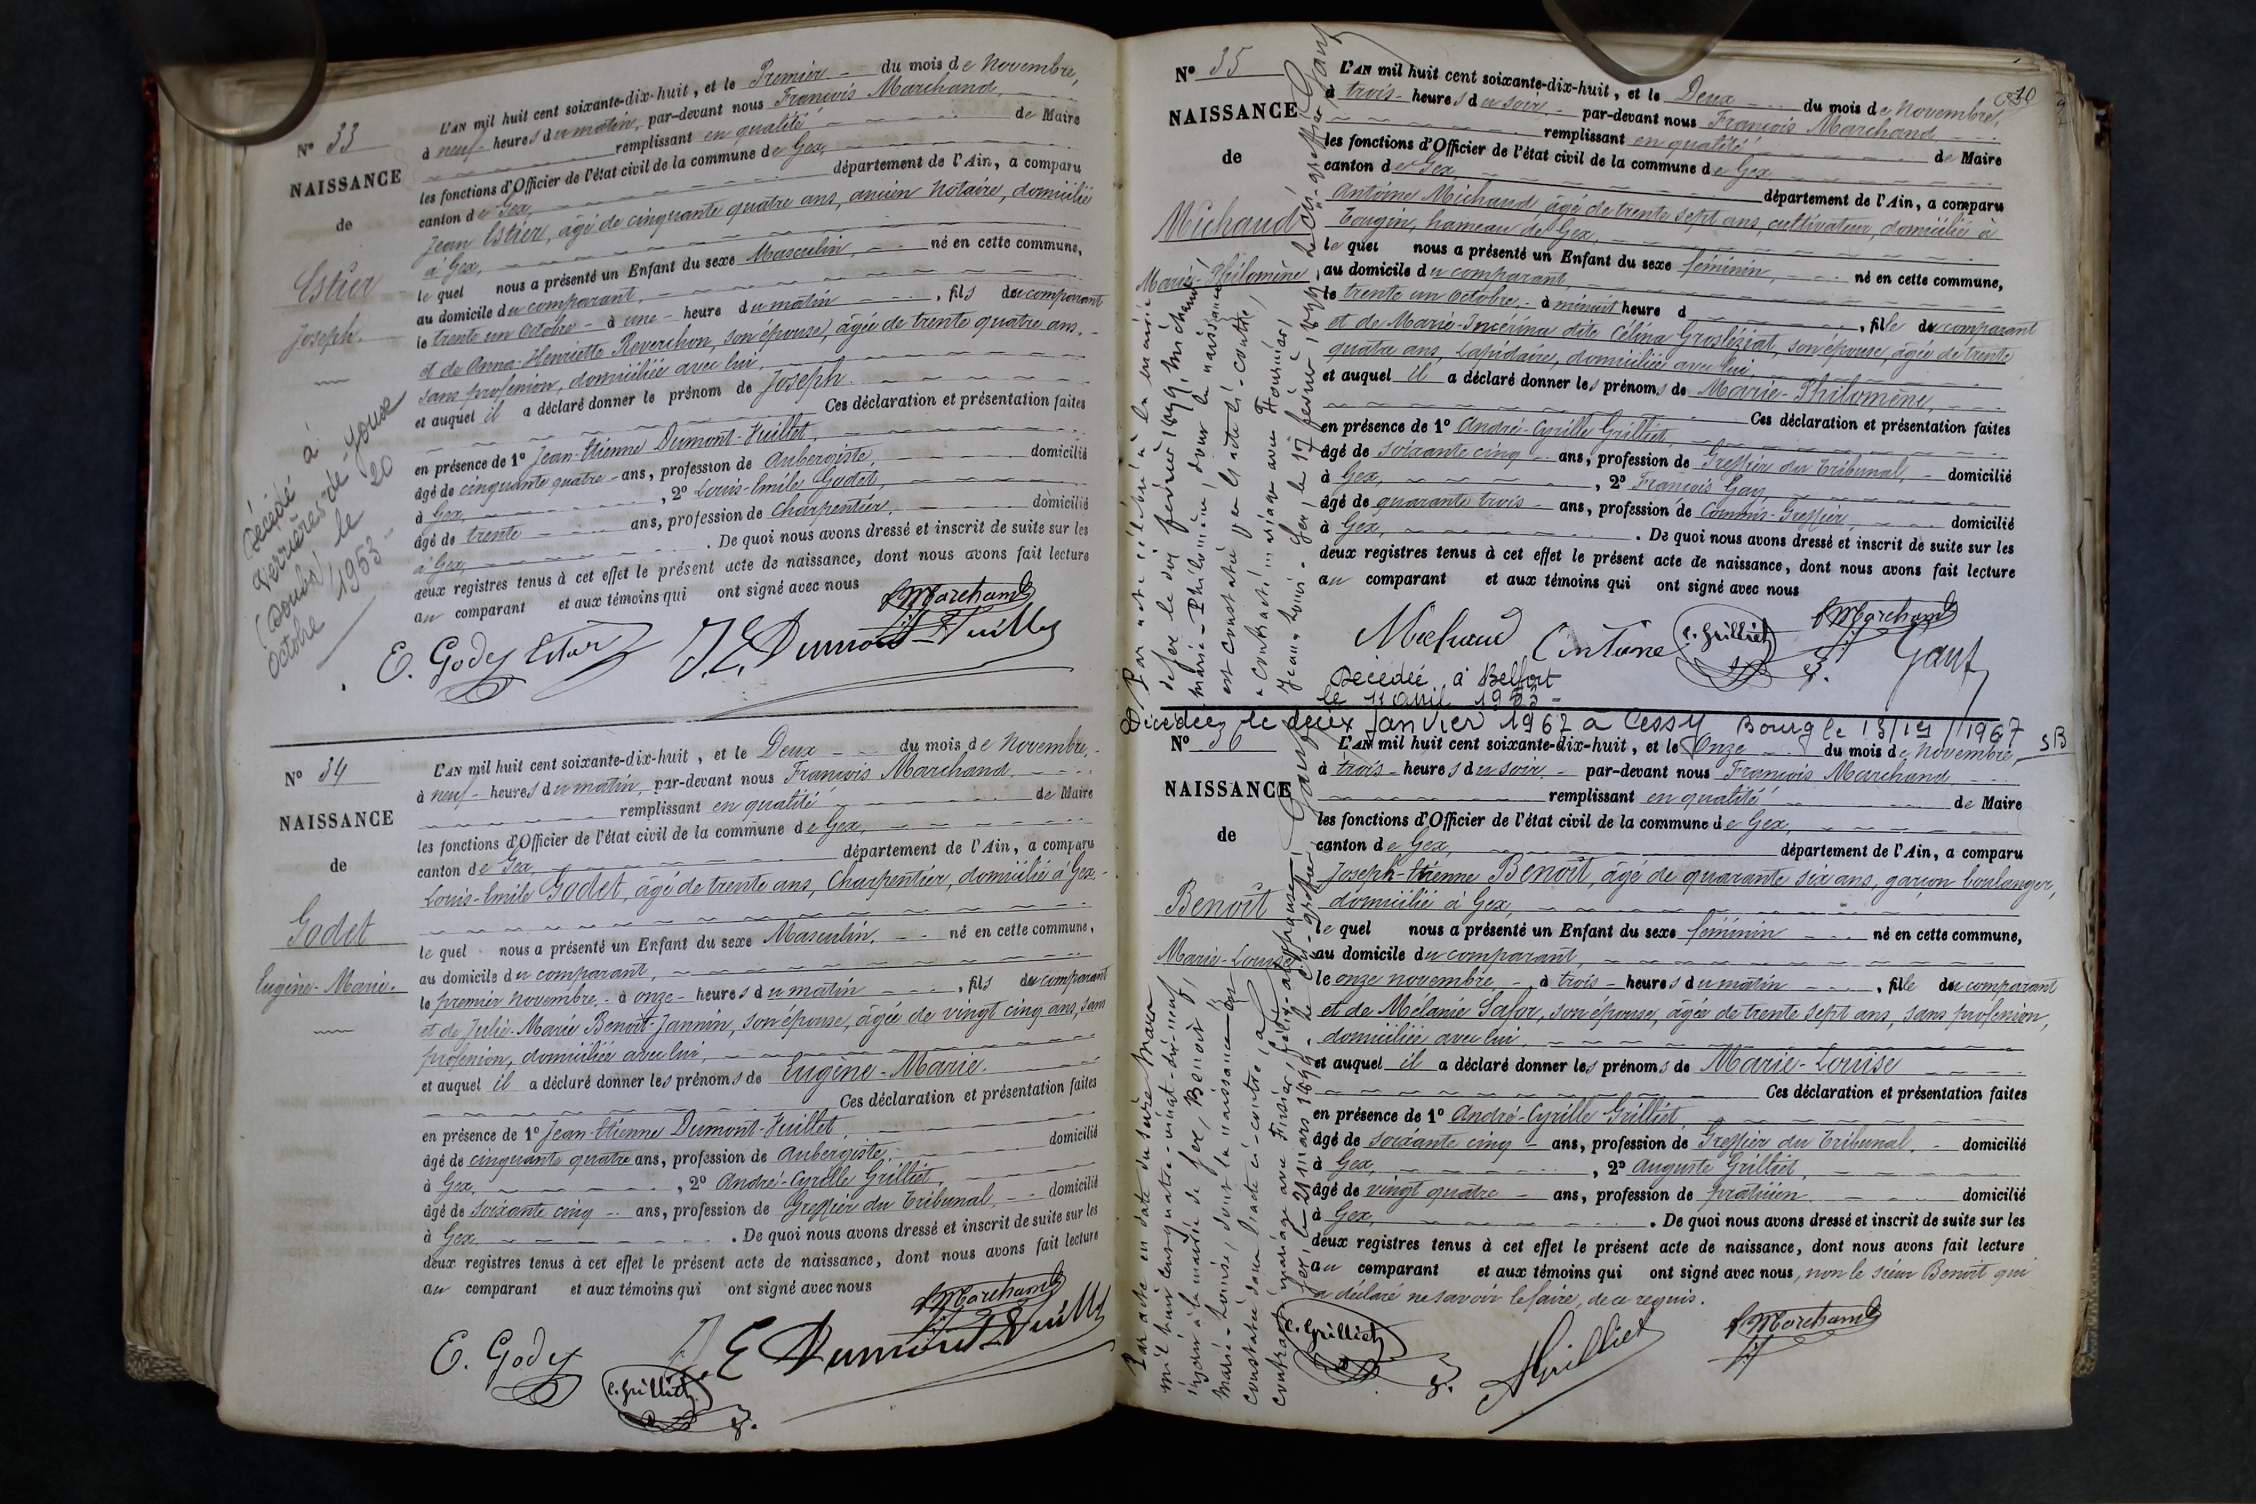 N° 33
NAISSANCE
de
Estier
Joseph.
Décédé à
Verrières-de-Joux
(Doubs) le 20
Octobre 1953
L'AN mil huit cent soixante-dix-huit, et le Premier du mois de Novembre,
à neuf heures du matin, par-devant nous François Marchand,
remplissant en qualité de Maire
les fonctions d'Officier de l'état civil de la commune de Gex,
canton de Gex, département de l'Ain, a comparu
Jean Estier, âgé de cinquante quatre ans, ancien Notaire, domicilié
à Gex,
lequel nous a présenté un Enfant du sexe Masculin, né en cette commune,
au domicile du comparant,
le trente un Octobre à une heure du matin, fils du comparant
et de Anna-Henriette Reverchon, son épouse, âgée de trente quatre ans,
sans profession, domiciliée avec lui,
et auquel il a déclaré donner le prénom de Joseph.
Ces déclaration et présentation faites
en présence de 1° Jean-Etienne Dumont-Vuillet,
âgé de cinquante quatre ans, profession de Aubergiste, domicilié
à Gex, 2° Louis-Emile Godet,
âgé de trente ans, profession de Charpentier, domicilié
à Gex. De quoi nous avons dressé et inscrit de suite sur les
deux registres tenus à cet effet le présent acte de naissance, dont nous avons fait lecture
au comparant et aux témoins qui ont signé avec nous
Marchand
E. Godet Estier J. E. Dumont-Vuillet
N° 34
NAISSANCE
de
Godet
Eugène-Marie.
L'AN mil huit cent soixante-dix-huit, et le Deux du mois de Novembre,
à neuf heures du matin, par-devant nous François Marchand
remplissant en qualité de Maire
les fonctions d'Officier de l'état civil de la commune de Gex,
canton de Gex, département de l'Ain, a comparu
Louis-Emile Godet, âgé de trente ans, Charpentier, domicilié à Gex
lequel nous a présenté un Enfant du sexe Masculin, né en cette commune,
au domicile du comparant,
le premier Novembre, à onze heures du matin, fils du comparant
et de Julie-Marie Benoit-Jannin, son épouse, âgée de vingt cinq ans, sans
profession, domiciliée avec lui,
et auquel il a déclaré donner les prénoms de Eugène-Marie.
Ces déclaration et présentation faites
en présence de 1° Jean-Etienne Dumont-Vuillet,
âgé de cinquante quatre ans, profession de Aubergiste, domicilié
à Gex, 2° André-Cyrille Grilliet,
âgé de soixante cinq ans, profession de Greffier du Tribunal, domicilié
à Gex. De quoi nous avons dressé et inscrit de suite sur les
deux registres tenus à cet effet le présent acte de naissance, dont nous avons fait lecture
au comparant et aux témoins qui ont signé avec nous
Marchand
E. Godet C. Grilliet J. E. Dumont-Vuillet
N° 35
NAISSANCE
de
Michaud
Marie-Philomène
Par acte célébré à la mairie
de Gex le dix février 1899, Michaud
Marie-Philomène, dont la naissance
est constatée par l'acte ci-contre,
a contracté mariage avec Fournier,
Jean-Louis. Gex, le 17 février 1899. Le Cis-greffier, Gauf
L'AN mil huit cent soixante-dix-huit, et le Deux du mois de Novembre,
à trois heures du soir, par-devant nous François Marchand
remplissant en qualité de Maire
les fonctions d'Officier de l'état civil de la commune de Gex,
canton de Gex, département de l'Ain, a comparu
Antoine Michaud âgé de trente sept ans, cultivateur, domicilié à
Tougin, hameau de Gex,
lequel nous a présenté un Enfant du sexe féminin, né en cette commune,
au domicile du comparant,
le trente un Octobre, à minuit heure d, fille du comparant
et de Marie-Incérina dite Célina Grosléziat, son épouse, âgée de trente
quatre ans, Lapidaire, domiciliée avec lui,
et auquel il a déclaré donner les prénoms de Marie-Philomène,
Ces déclaration et présentation faites
en présence de 1° André-Cyrille Grilliet,
âgé de soixante cinq ans, profession de Greffier du Tribunal, domicilié
à Gex, 2° François Gay,
âgé de quarante trois ans, profession de Commis-Greffier, domicilié
à Gex. De quoi nous avons dressé et inscrit de suite sur les
deux registres tenus à cet effet le présent acte de naissance, dont nous avons fait lecture
au comparant et aux témoins qui ont signé avec nous
Michaud Antoine C. Grilliet Marchand
Décédée à Belfort
le 11 avril 1953
Décédée le deux Janvier 1967 à Cessy Bourg le 13/1er/1967
SB
N° 36
NAISSANCE
de
Benoît
Marie-Louise
Par acte en date du seize mars
mil huit cent quatre-vingt-dix-neuf
reçu à la mairie de Gex, Benoit,
Marie-Louise, dont la naissance est
constatée dans l'acte ci-contre, a
contracté mariage avec
Gex, le 21 mars 1899. Le Cis-greffier,
L'AN mil huit cent soixante-dix-huit, et le Onze du mois de Novembre,
à trois heures du soir, par-devant nous François Marchand
remplissant en qualité de Maire
les fonctions d'Officier de l'état civil de la commune de Gex,
canton de Gex, département de l'Ain, a comparu
Joseph-Etienne Benoît, âgé de quarante six ans, garçon boulanger,
domicilié à Gex,
lequel nous a présenté un Enfant du sexe féminin né en cette commune,
au domicile du comparant,
le onze novembre, à trois heures du matin, fille du comparant
et de Mélanie Lafor, son épouse, âgée de trente sept ans, sans profession,
domiciliée avec lui,
et auquel il a déclaré donner les prénoms de Marie-Louise
Ces déclaration et présentation faites
en présence de 1° André-Cyrille Grilliet
âgé de soixante cinq ans, profession de Greffier du Tribunal, domicilié
à Gex, 2° Auguste Grilliet,
âgé de vingt quatre ans, profession de praticien domicilié
à Gex. De quoi nous avons dressé et inscrit de suite sur les
deux registres tenus à cet effet le présent acte de naissance, dont nous avons fait lecture
au comparant et aux témoins qui ont signé avec nous, non le sieur Benoît qui
a déclaré ne savoir le faire, de ce requis.
C. Grilliet A Grilliet Marchand